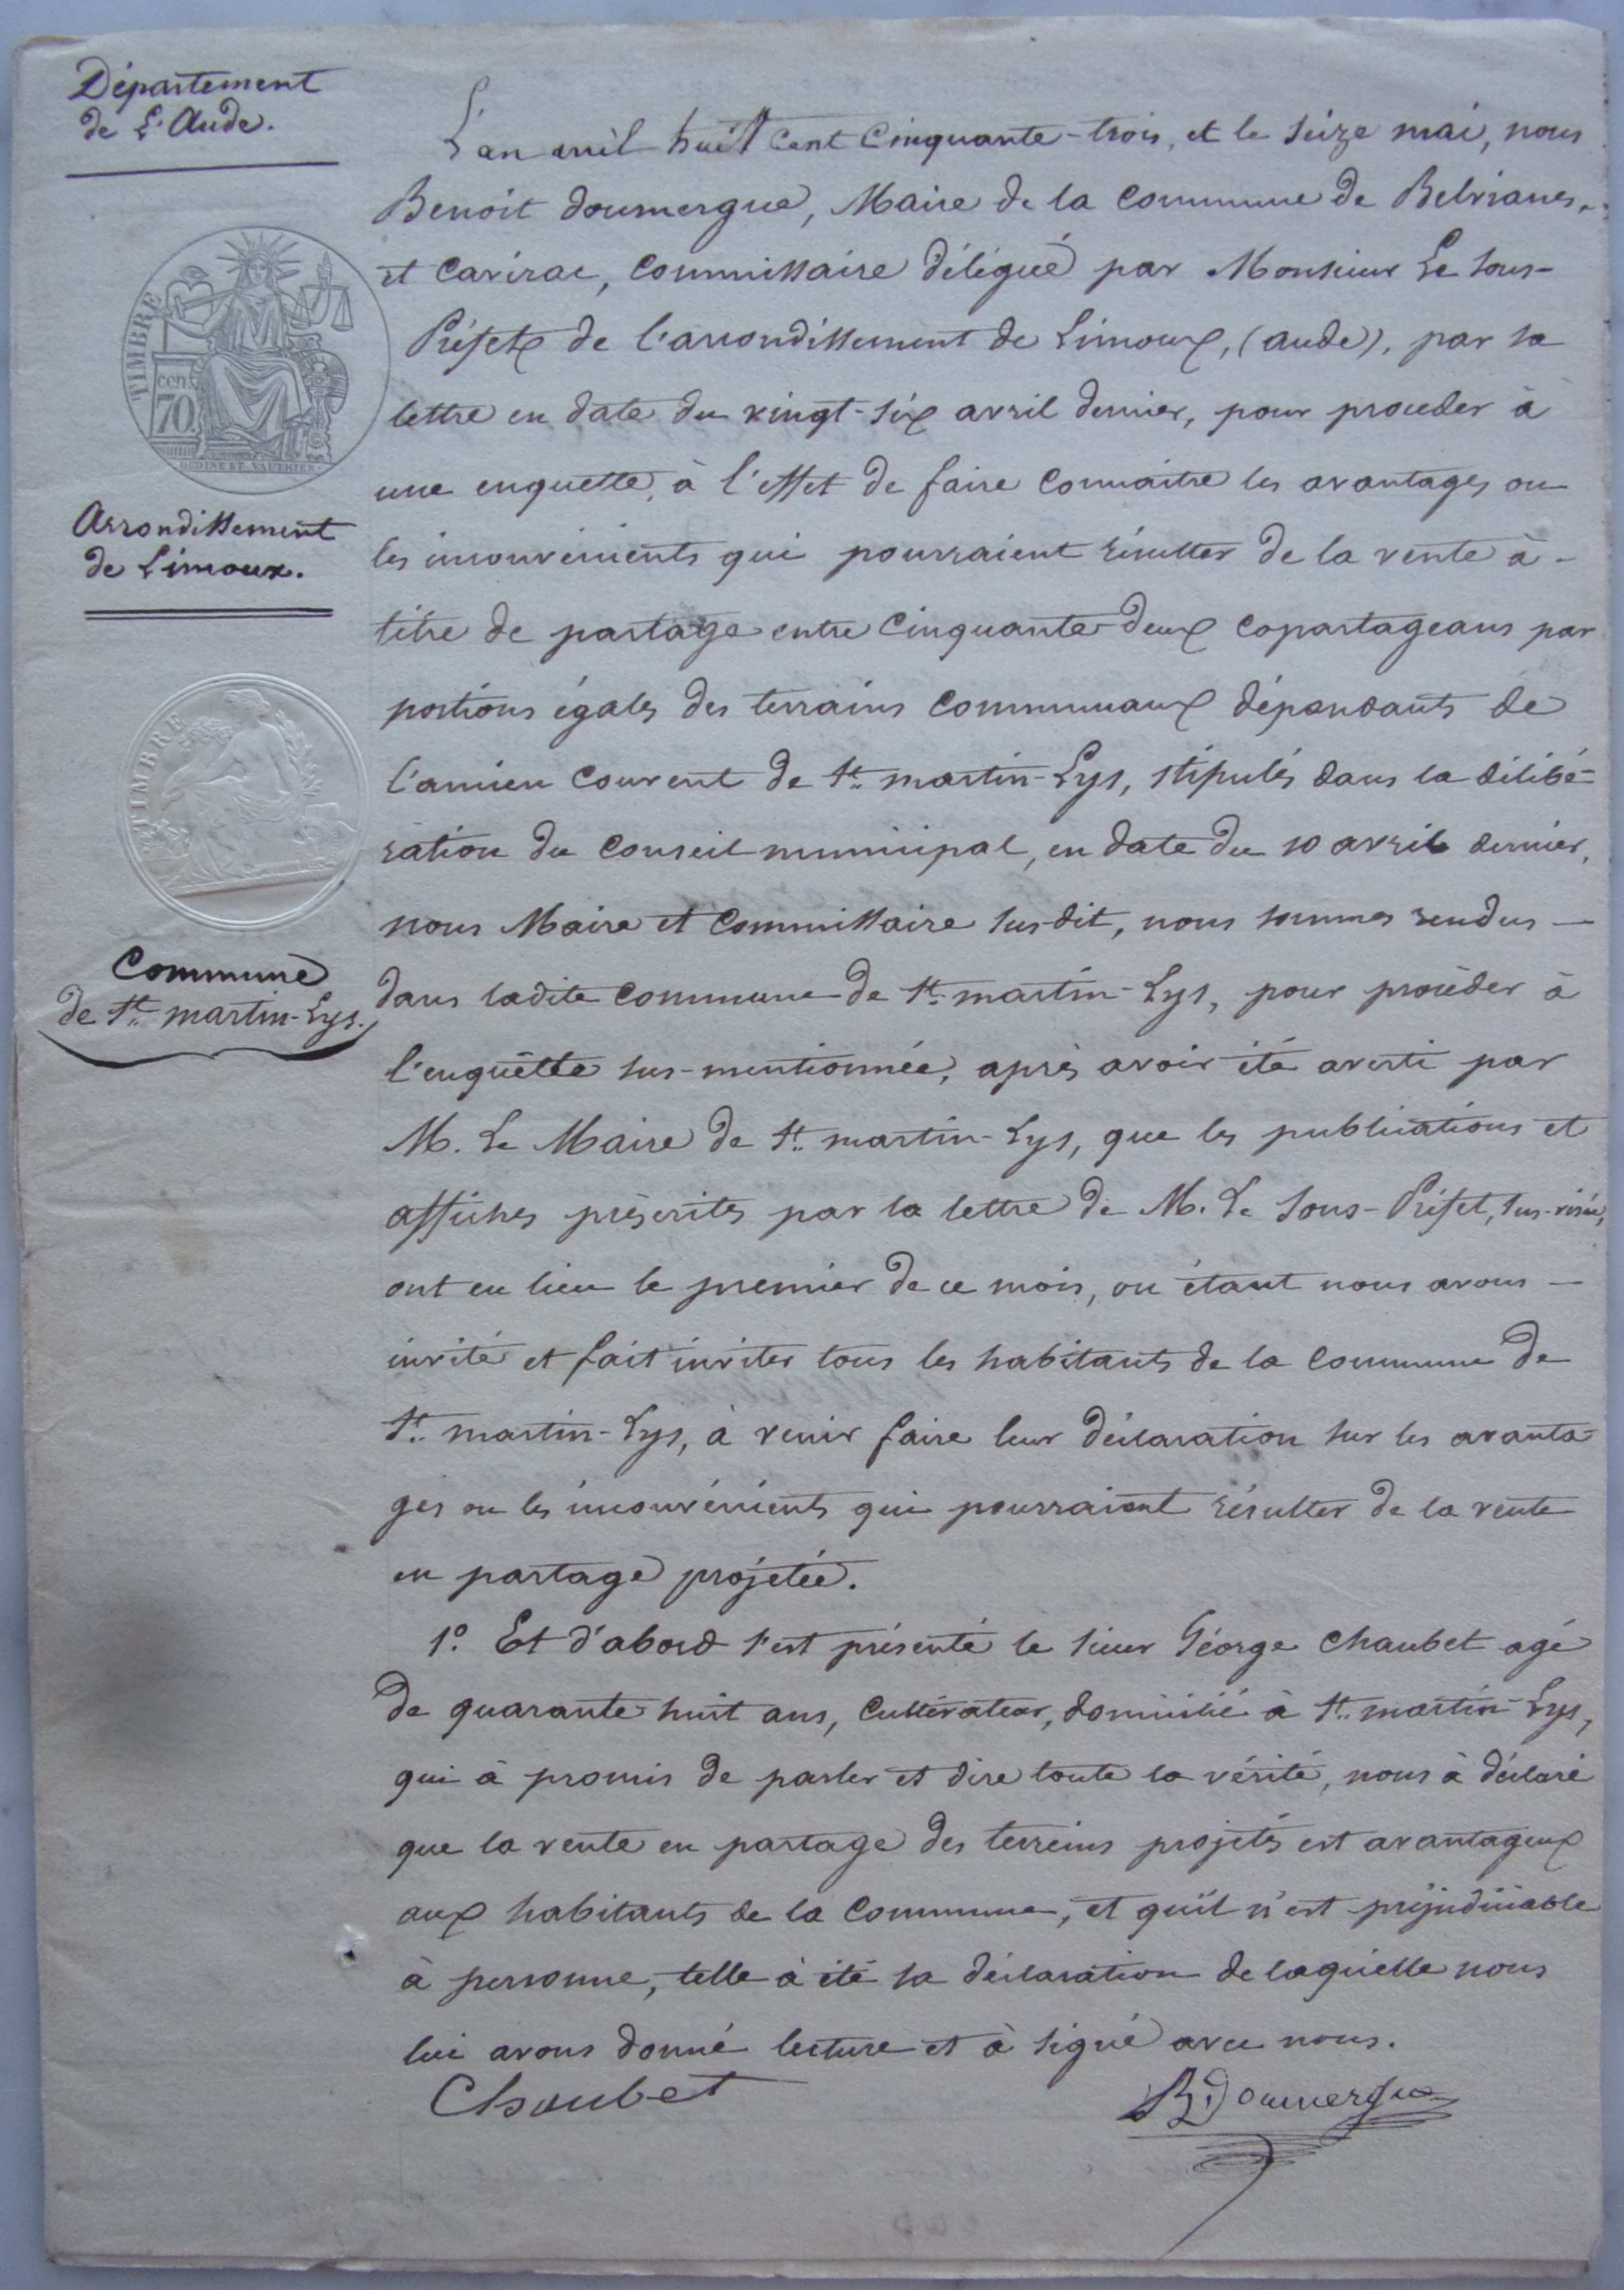 Département
de L'Aude.
TIMBRE
cent.
70
OUDINE ET VAUTHIER
Arrondissement
de Limoux.
TIMBRE
Commune
de St. martin-Lys.
L'an mil huit cent cinquante-trois, et le seize mai, nous
Benoit doumergue, Maire de la commune de Belvianes-
et Cavirac, commissaire délégué par Monsieur Le sous-
Préfet de l'arrondissement de Limoux, (aude), par sa
lettre en date du vingt-six avril dernier, pour procéder à
une enquette, à l'effet de faire connaitre les avantages ou
les inconvénients qui pourraient résulter de la vente à-
titre de partage entre cinquante-deux copartageans par
portions égales des terrains communaux dépendants de
l'ancien couvent de St. martin-Lys, stipulés dans la délibé-
ration du conseil municipal, en date du 10 avril dernier,
nous Maire et commissaire sus-dit, nous sommes rendus —
dans ladite commune de St. martin-Lys, pour procèder à
l'enquêtte sus-mentionnée, après avoir été averti par
M. Le Maire de St. martin-Lys, que les publications et
affiches prèscrites par la lettre de M. Le Sous-Préfet, sus-visée,
ont eu lieu le premier de ce mois, ou étant nous avons —
invité et fait inviter tous les habitants de la commune de
St. martin-Lys, à venir faire leur déclaration sur les avanta-
ges ou les inconvénients qui pourraient résulter de la vente
en partage projetée.
1.° Et d'abord s'est présenté le sieur Géorge Chaubet agé
de quarante-huit ans, cultivateur, domicilié à St. martin-Lys,
qui à promis de parler et dire toute la vérité, nous à déclaré
que la vente en partage des terreins projetés est avantageux
aux habitants de la commune, et qu'il n'est préjudiciable
à personne, telle à été sa déclaration de laquelle nous
lui avons donné lecture et à signé avec nous.
Choubet
B. Doumergue